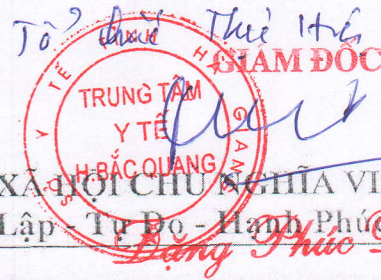 Tổ
GIÁM ĐỐC
SỞ Y TẾ
TRUNG TÂM
Y TẾ
H.BẮC QUANG
XÃ HỘI CHỦ NGHĨA VI
Lập - Tự Do - Hạnh Phúc
Đặng Phúc